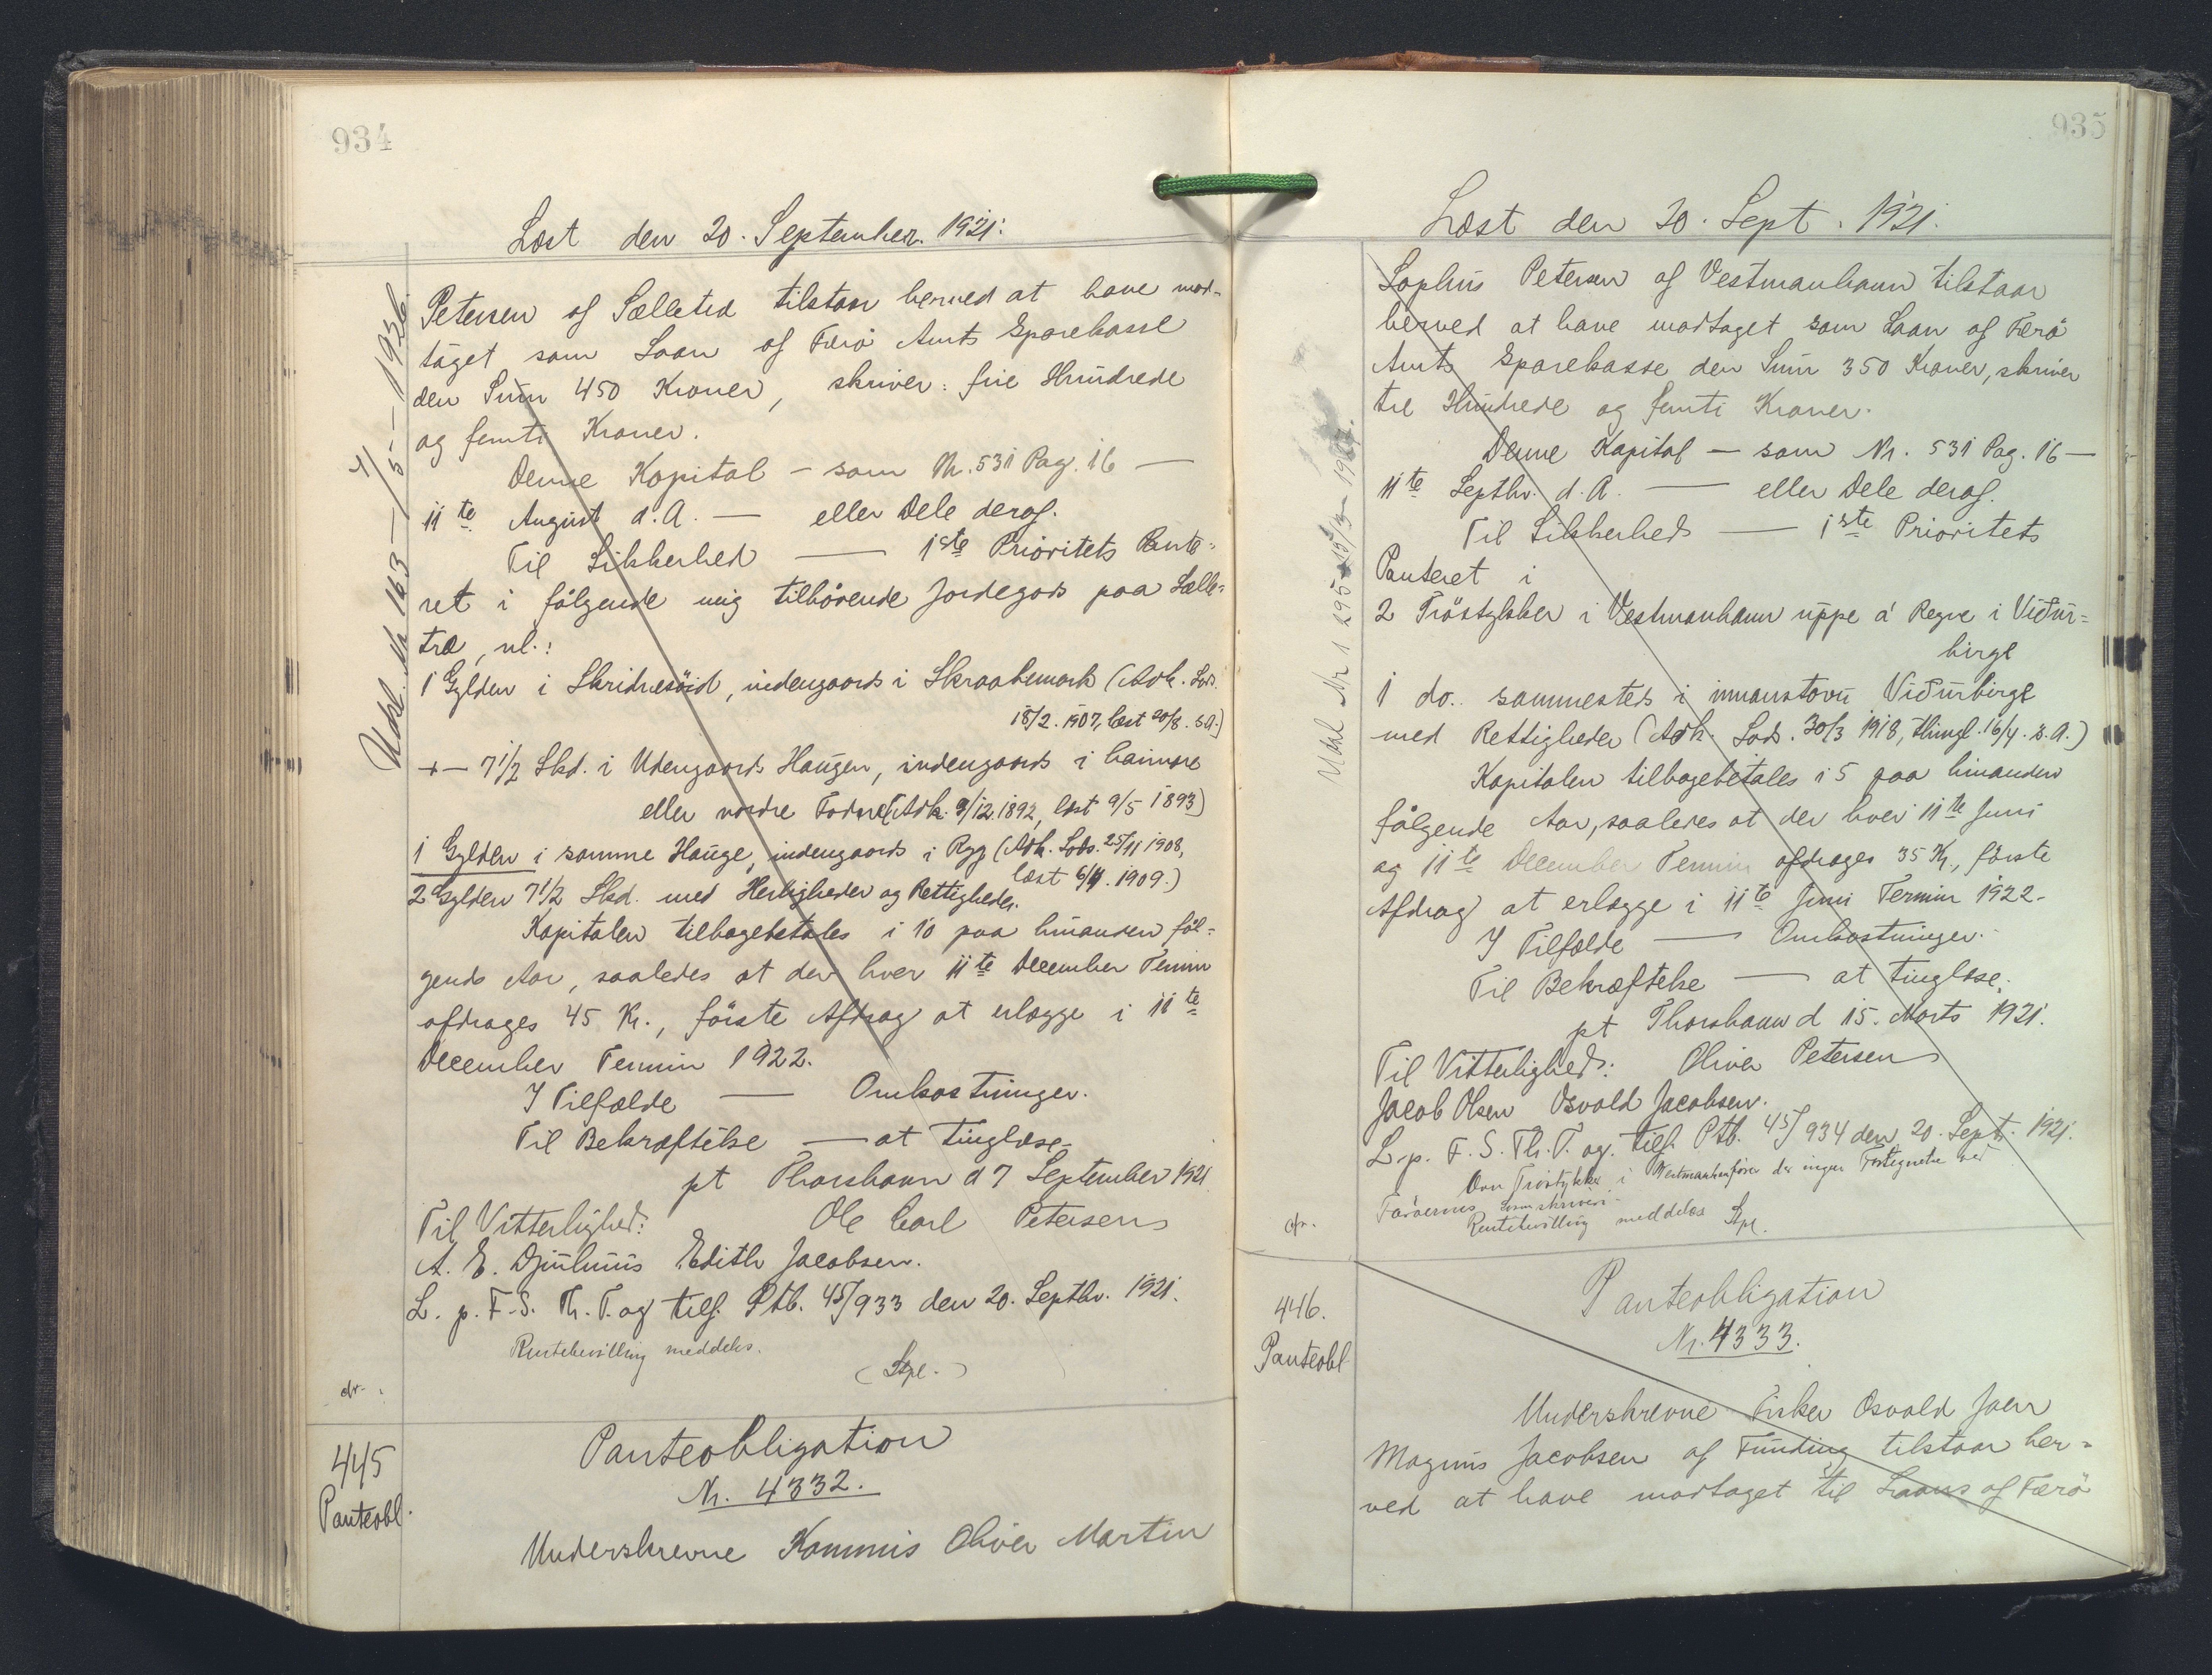 934
Læst den 20. September. 1921.
Petersen af Sælletræ tilstaar herved at have mod-
taget som Laan af Færø Amts Sparekasse
den Sum 450 Kroner, skriver: fire Hundrede
og femti Kroner.
Denne Kapital — som Nr. 531 Pag. 16 —
11te August d.A. — eller Dele deraf.
Til Sikkerhed — 1ste Prioritets Pante-
ret i følgende mig tilhørende Jordegods paa Sælle-
træ, nl.:
1 Gylden i Skridresøid, indengaards i Skraatemark (Adk. Lods.
18/2. 1907, læst 20/8. s.A.)
7 1/2 Skd. i Udengaards Haugen, indengaards i
eller nordre (Adk. 9/12. 1892, læst 9/5 1893)
1 Gylden i samme Hauge, indengaards i Ryg (Adk. Lods. 25/11 1908,
læst 6/4. 1909.)
2 Gylden 7 1/2 Skd. med Herligheder og Rettigheder.
Kapitalen tilbagebetales i 10 paa hinanden føl-
gende Aar, saaledes at der hver 11te December Termin
afdrages 45 Kr., første Afdrag at erlægge i 11te
December Termin 1922.
I Tilfælde — Omkostninger.
Til Bekræftelse — at tinglæse.
pt Thorshavn d 7 September 1921
Til Vitterlighed: Ole Carl Petersen
A. E. Djurhuus Edith Jacobsen.
L. p. F. S. Th. T. og tilf. Ptb. 45/933 den 20. Septbr. 1921.
Rentebevilling meddeles.
(Stpl.)
Udsl. Nr 163 — 1/5 — 1936.
445
Panteobl.
Panteobligation
Nr. 4332.
Underskrevne Kommis Oliver Martin
935
Læst den 20. Sept. 1921.
Sophus Petersen af Vestmanhavn tilstaar
herved at have modtaget som Laan af Færø
Amts Sparekasse den Sum 350 Kroner, skriver
tre Hundrede og femti Kroner.
Denne Kapital — som Nr. 531 Pag. 16 —
11te Septbr. d.A. — eller Dele deraf.
Til Sikkerhed — 1ste Prioritets
Panteret i
2 Trøstykker i Vestmanhavn uppe á Regve i Viður-
birge
1 do. sammesteds i innanstovu Viðurbirge
med Rettigheder (Adk. Lods. 30/3 1918, thingl. 16/4. s.A.)
Kapitalen tilbagebetales i 5 paa hinanden
følgende Aar, saaledes at der hver 11te Juni
og 11te December Termin afdrages 35 Kr., første
Afdrag at erlægge i 11te Juni Termin 1922.
I Tilfælde — Omkostninger.
Til Bekræftelse — at tinglæse.
pt Thorshavn d 15. Marts 1921.
Til Vitterlighed: Oliver Petersen
Jacob Olsen Osvald Jacobsen.
L. p. F. S. Th. T. og tilf. Ptb. 45/934 den 20. Sept. 1921.
Over Trøstykker i Vestmanhavn føres der ingen Fortegnelse ved
Færøernes Sorenskriveri.
Rentebevilling meddeles Stpl.
446.
Panteobl
Panteobligation
Nr. 4333.
Underskrevne Fisker Osvald Joen
Magnus Jacobsen af Funding tilstaar her-
ved at have modtaget til Laans af Færø